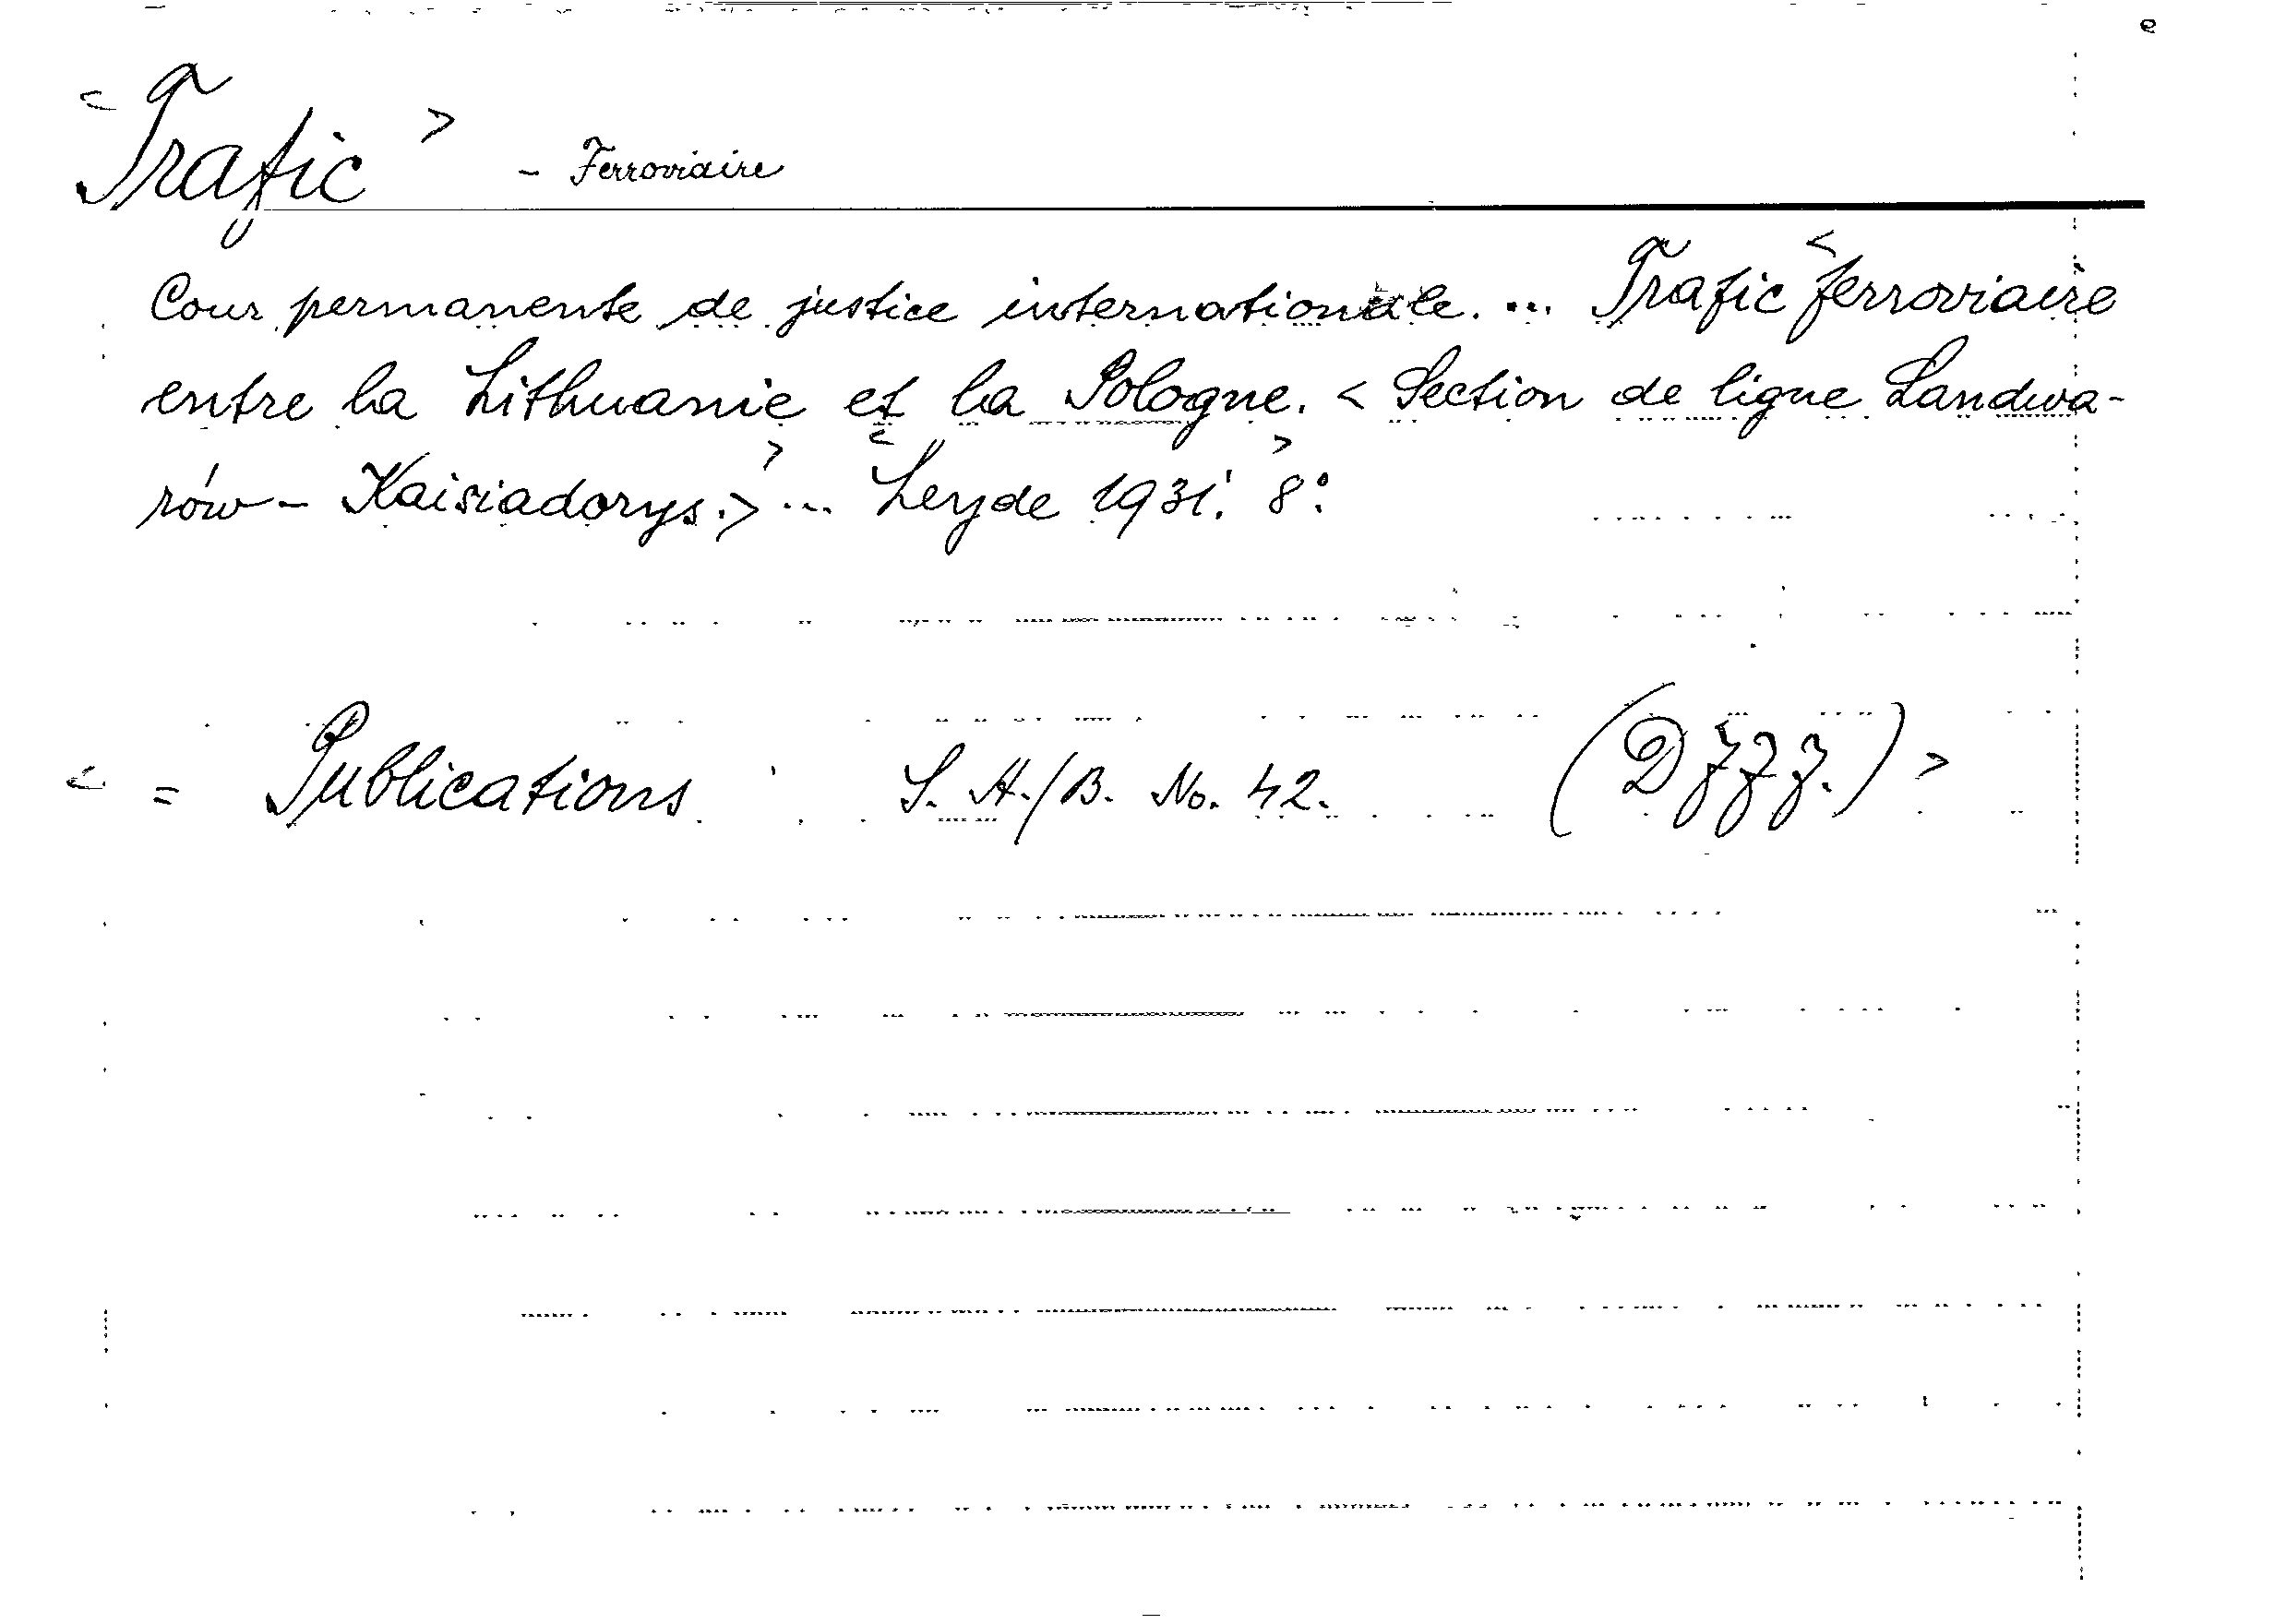 <Trafic> - Ferroviaire
Cour permanente de justice internationale. ... Trafic <ferroviaire
entre la Lithuanie et la Pologne. < Section de ligne Landwa-
rów - Kaisiadorys.> > ... <Leyde 1931. 8°.>
< = Publications S. A./B. No. 42. (DZZZ.) >